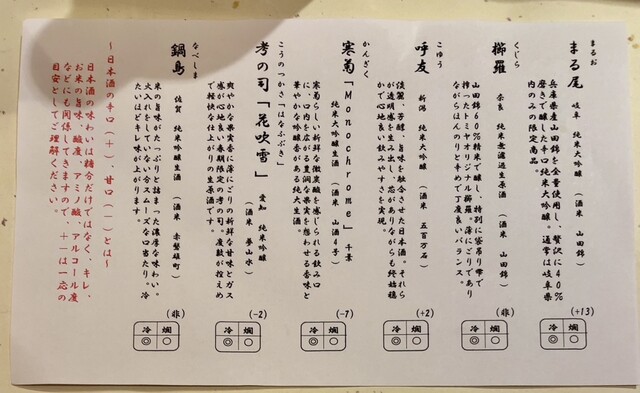 まるお
まる尾 岐阜 純米大吟醸 (酒米 山田錦)
兵庫県産山田錦を全量使用し、贅沢に40%
磨きで醸した辛口純米大吟醸。通常は岐阜県
内のみの限定商品。
(+13)
冷 燗
◎ ○
くじら
櫛羅 奈良 純米無濾過生原酒 (酒米 山田錦)
山田錦60%精米で醸し、特別に袋吊り雫で
搾ったトミヤオリジナル櫛羅。薄にごりであり
ながらほんのりと辛めで丁度良いバランス。
(非)
冷 燗
◎ ○
こゆう
呼友 新潟 純米大吟醸 (酒米 五百万石)
淡麗、芳醇、旨味を融合させた日本酒。それら
が透明感を生み出し、芯がありながらも終始穏
かで心地良い飲みやすさを実現。
(+2)
冷 燗
◎ ○
かんぎく
寒菊「Monochrome」 千葉
純米大吟醸生酒 (酒米 山酒4号)
寒菊らしい新鮮な微炭酸を感じられる飲み口
に、口内を広がる豊潤な果実を想わせる香味と
華やかな吟醸香がある純米大吟醸。
(-7)
冷 燗
◎ ○
こうのつかさ「はなふぶき」
孝の司「花吹雪」 愛知 純米吟醸
(酒米 夢山水)
爽やかな果実香に薄にごりの新鮮な甘味とガス
感が心地良い春期限定の孝の司。度数が控えめ
で軽快な仕上がりの生原酒です。
(-2)
冷 燗
◎ ○
なべしま
鍋島 佐賀 純米吟醸生酒 (酒米 赤磐雄町)
米の旨味がたっぷりと詰まった濃厚な味わい。
火入れをしていない分スムーズな口当たり。冷
たいほどキレ味が上がります。
(非)
冷 燗
◎ ○
～日本酒の辛口(+)、甘口(-)とは～
日本酒の味わいは糖分だけではなく、キレ、
お米の旨味、酸度、アミノ酸、アルコール度
などにも関係してきますので、+-は一応の
目安としてご理解ください。